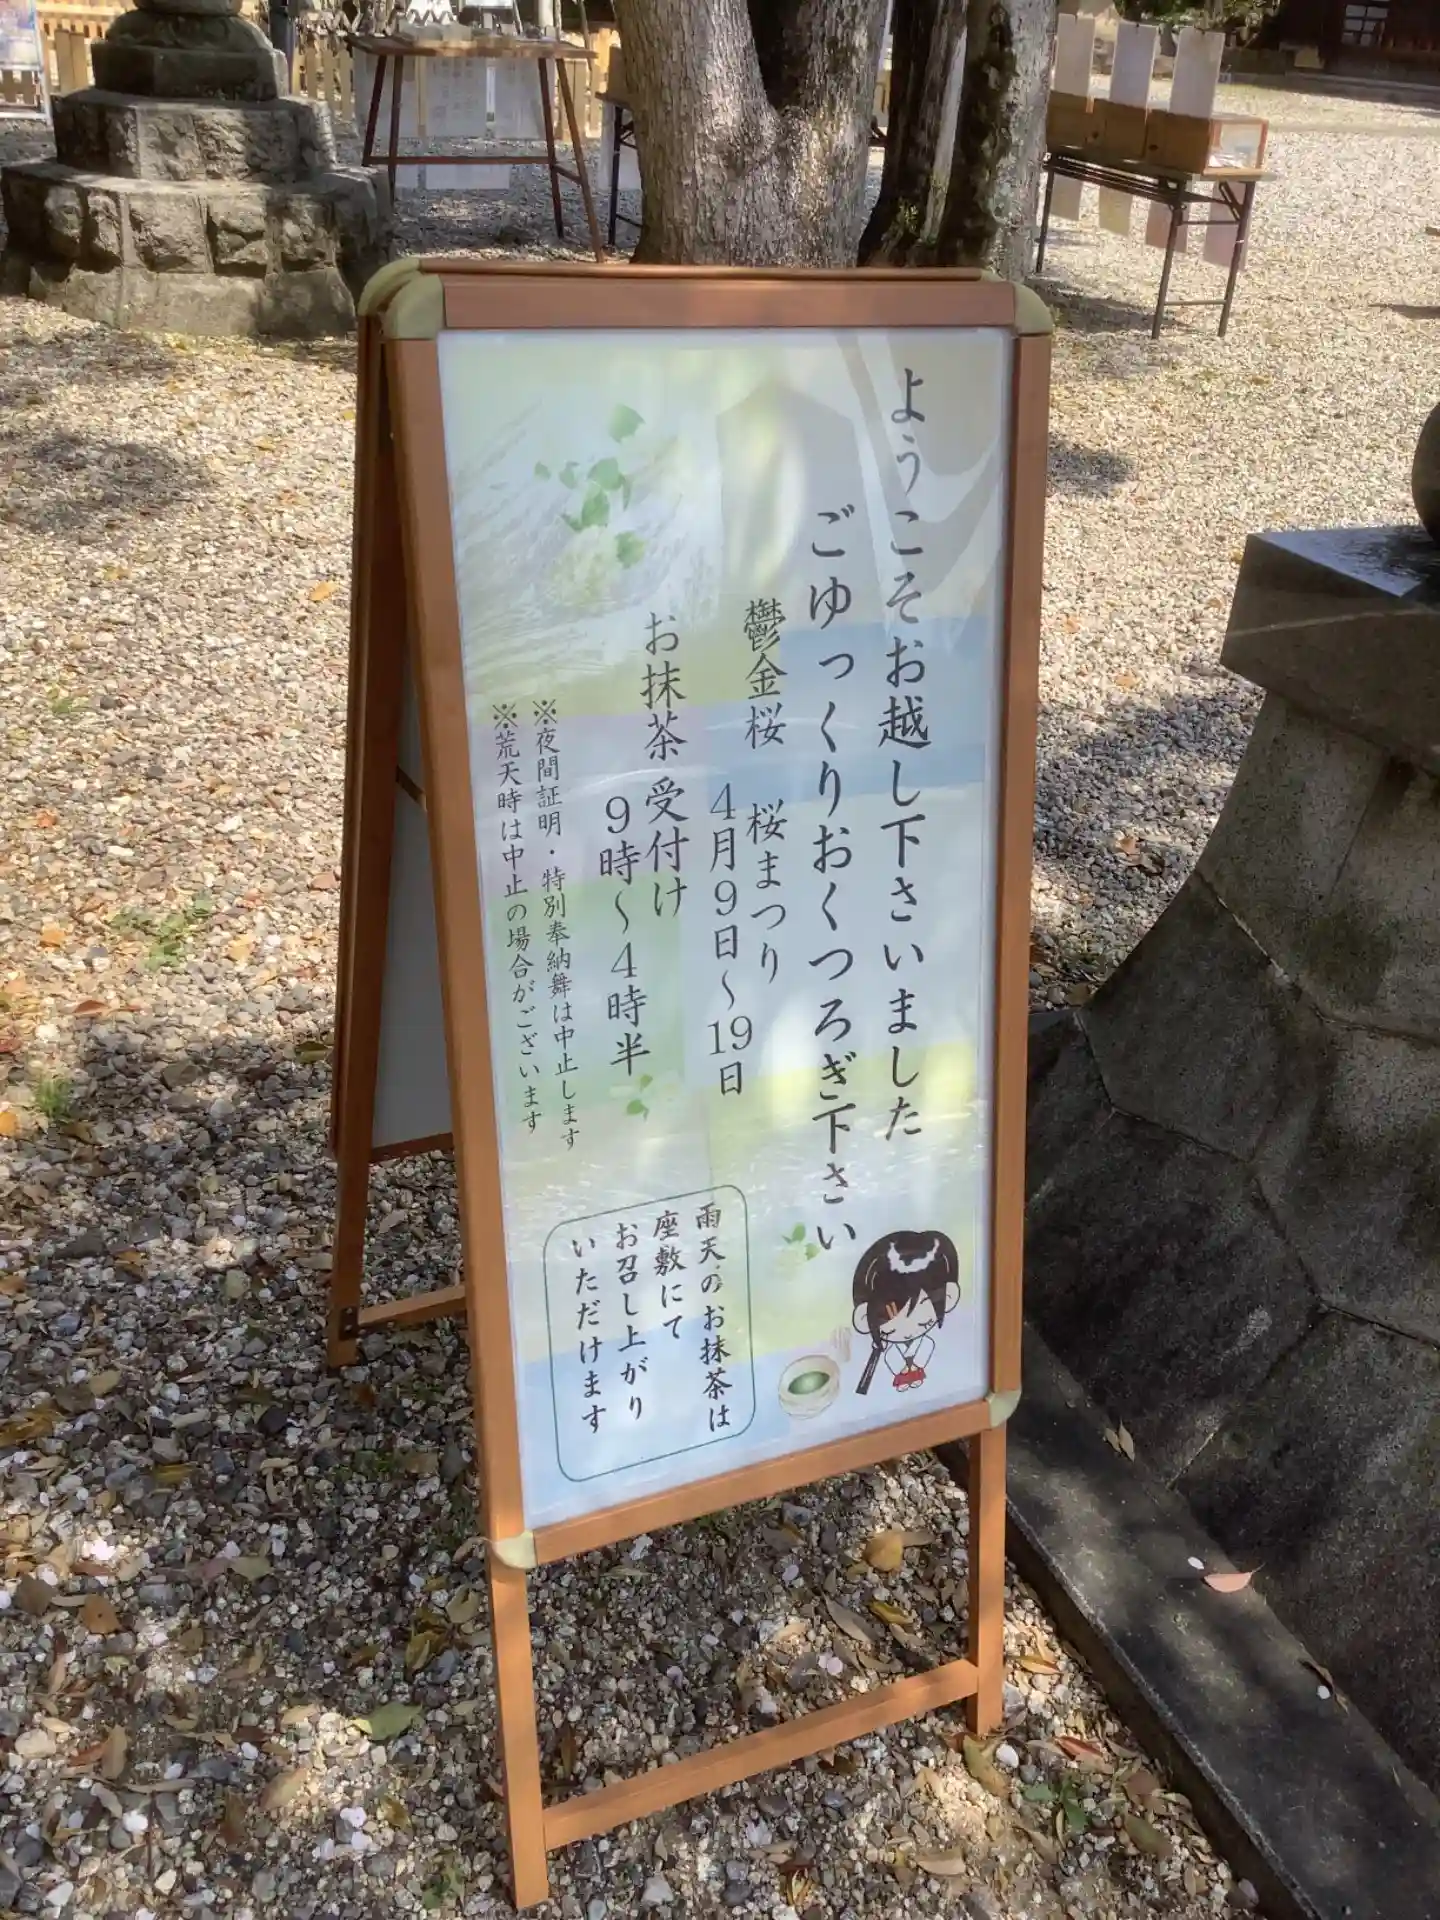 ようこそお越し下さいました
ごゆっくりおくつろぎ下さい
鬱金桜 桜まつり
4月9日〜19日
お抹茶 受付け
9時〜4時半
※夜間証明・特別奉納舞は中止します
※荒天時は中止の場合がございます
雨天のお抹茶は
座敷にて
お召し上がり
いただけます